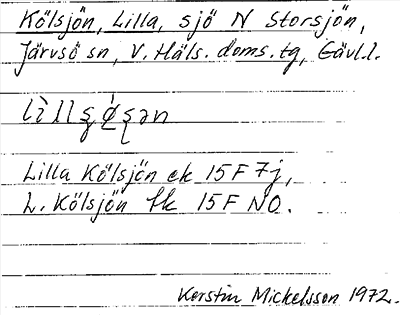 Kölsjön, Lilla, sjö N Storsjön,
Järvsö sn, V. Häls. doms.tg, Gävl.l.
Lilla Kölsjön ek 15F 7j,
L. Kölsjön tk 15F NO.
Kerstin Mickelsson 1972.